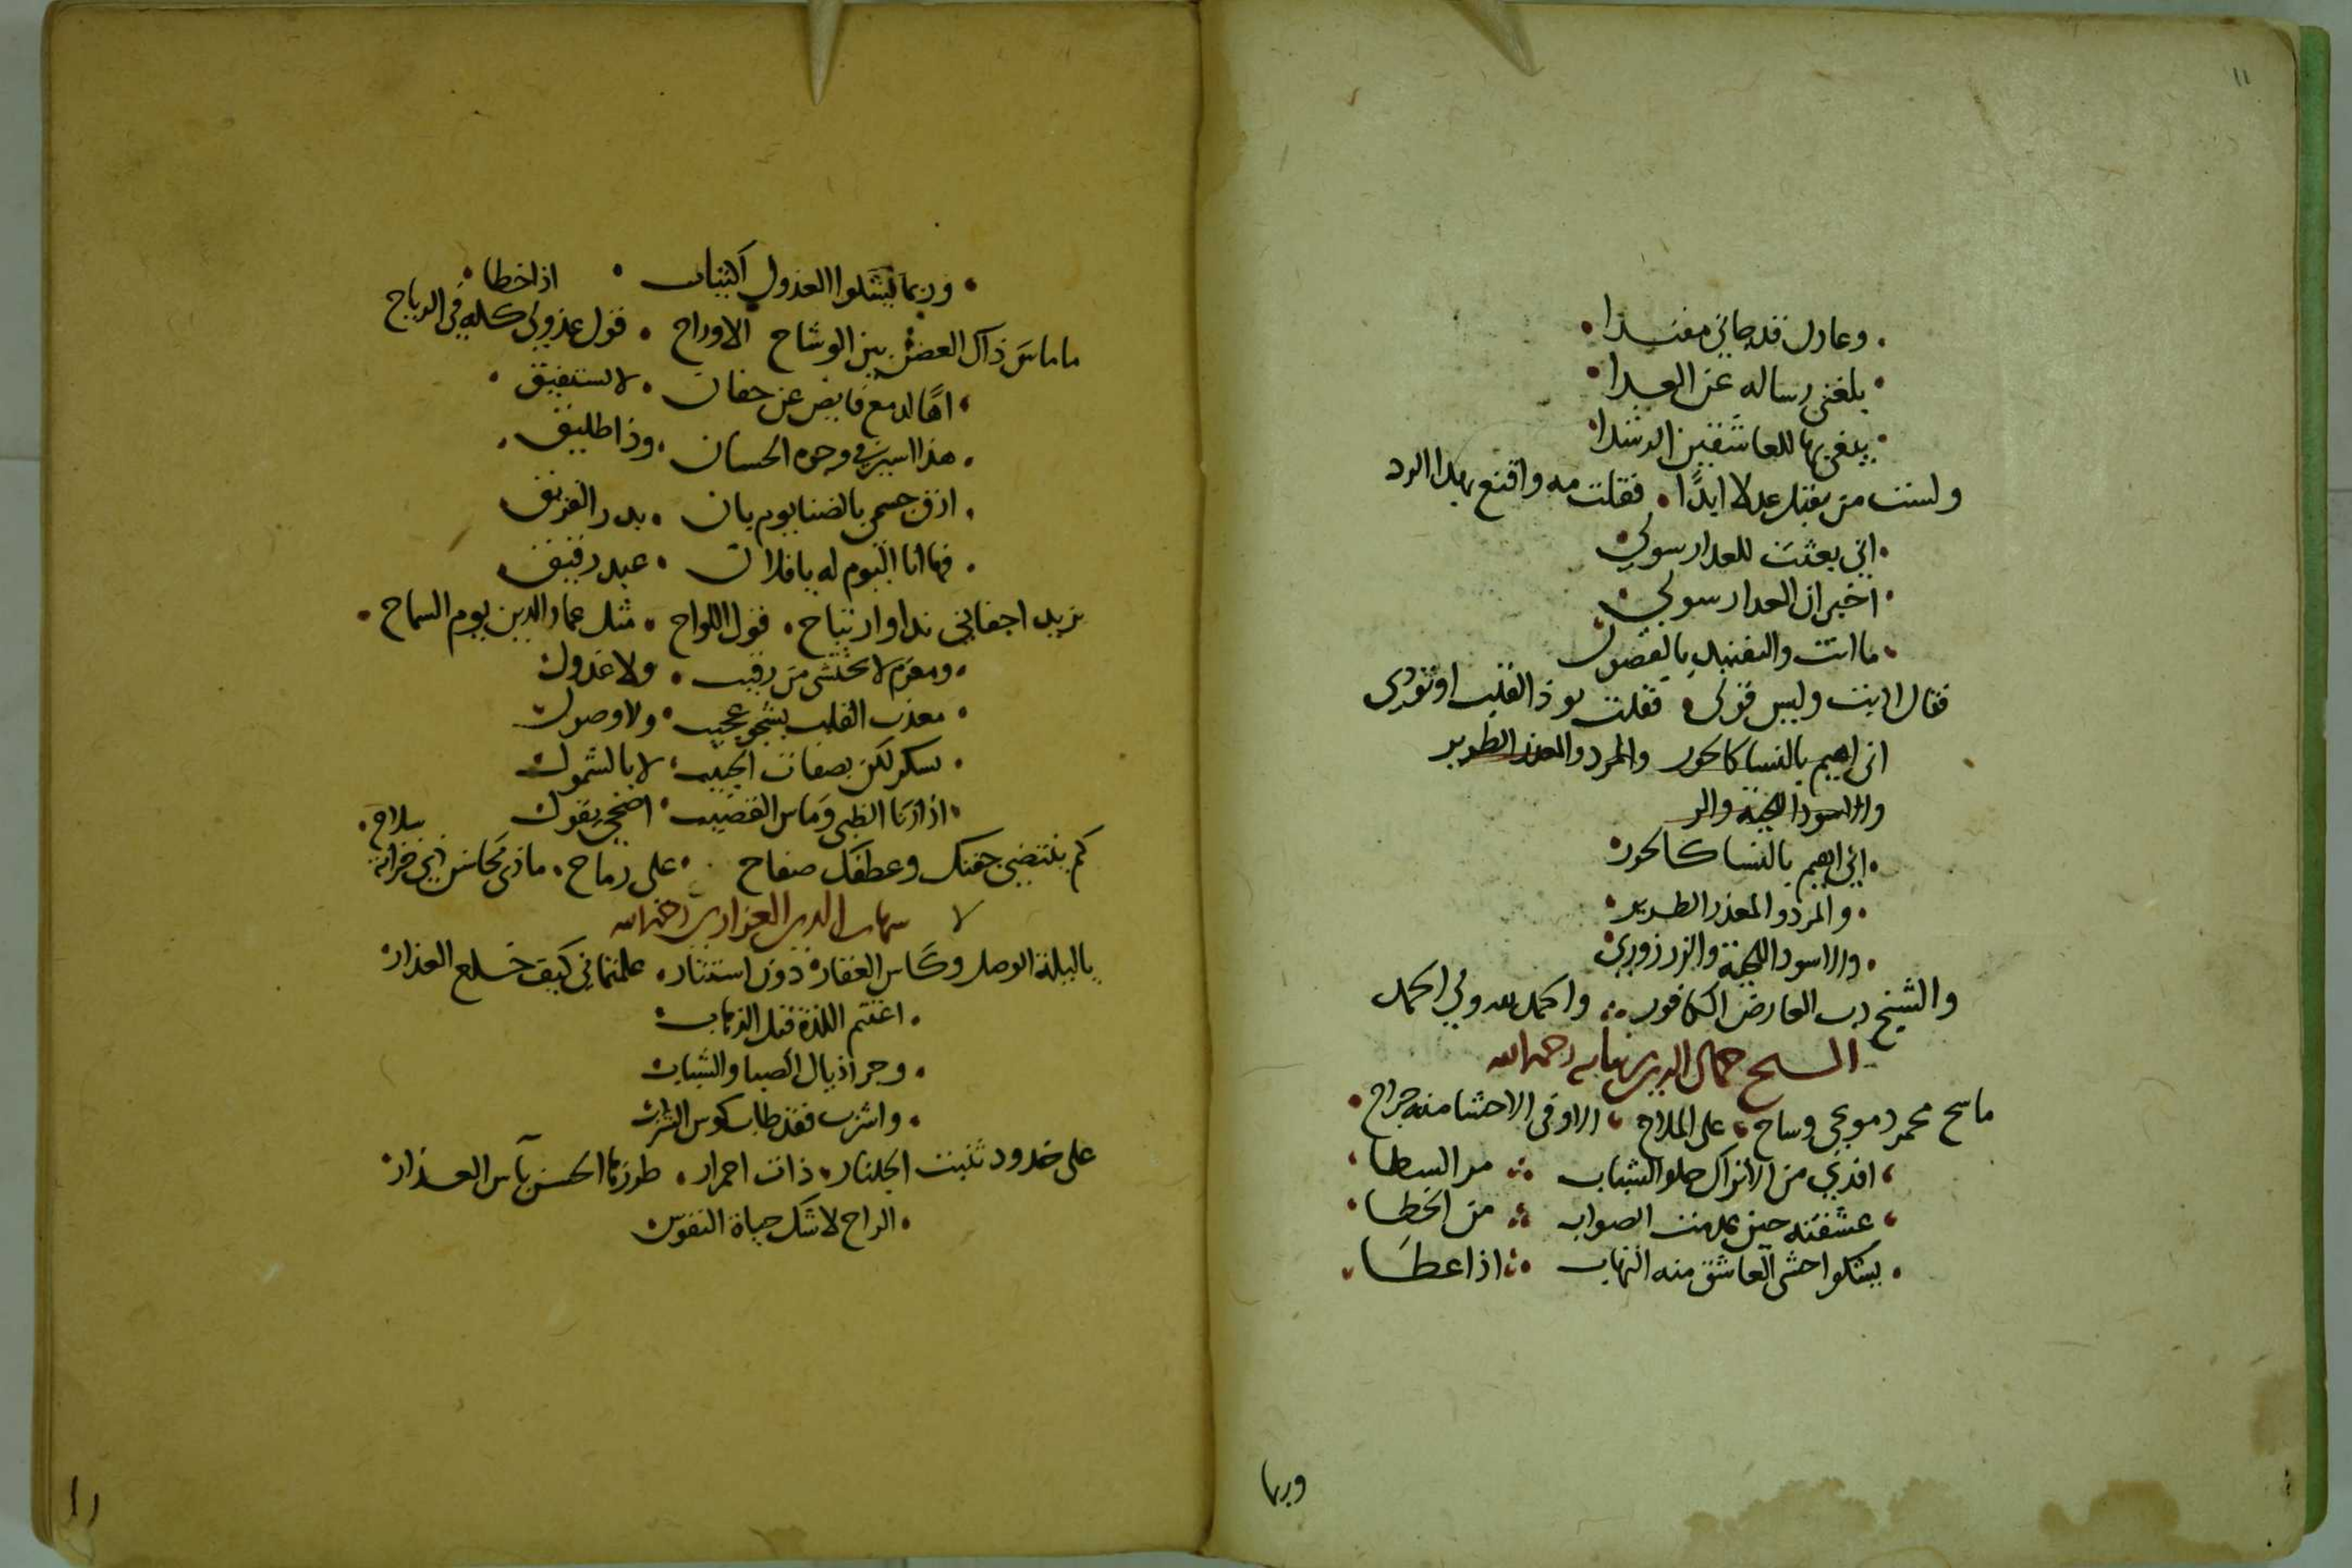 ١١
وعادل قد جاني مفندا
بلغني رساله عن العدا
يبغي بها للعاشقين الرشدا
ولست من يقبل عدلا ابدًا فقلت مه واقنع بهدا الرد
اني بعثت للعدا رسولي
اخبر ان العدا رسولي
ما انت والتفنيد يا فضول
فقال لا بنت وليس قولى فقلت يوذ القلب او تودى
انى اهيم بالنسا كالحور والمرد والمعذر الطرير
والاسود اللحية والر
اني اهيم بالنسا كالحور
والمرد والمعذر الطرير
والاسود اللحية والزرزوري
والشيخ رب العارض الكافور والحمد لله ولي الحمد
الشيخ جمال الدين نباته رحمه الله
ماسح محمر دموعي وساح على الملاح الا وفي الاحشا منه جراح
افدي من الاتراك حلو الشباب مر السطا
عشقته حين عدمت الصواب من الخطا
يشكوا حشى العاشق منه التهاب اذا عطا
وربما
وربما يشلوا العذول اكتياب اذا خطا
ما ماس ذاك الغصن بين الوشاح الا وراح قول عذولي كله في الرياح
اها لدمع فايض عن جفان لا تستفيق
هذا اسير في وجوه الحسان وذا طليق
ارق جسمي بالضنا يوم بان بدر الفريق
فها انا اليوم له يا فلان عبد رقيق
يزيد اجفاني ندا وارتياح قول اللواح مثل عماد الدين يوم السماح
ومغرم لا يختشى من رقيب ولا عذول
معذب القلب بشجو عجيب ولا وصول
يسكر لكن بصفات الحبيب لا بالشمول
اذا رنا الظبى وماس القضيب اضحى يقول
كم ينتضي جفنك وعطفك صفاح على رماح ماذي محاسن ذي خزانة سلاح
لا شهاب الدين العزازي رحمه الله
يا ليلة الوصل وكاس العقار دون استتار علمتماني كيف خلع العذار
اغتنم اللذة قبل الذهاب
وجر اذيال الصبا والشباب
واشرب فقد طاب كوس الشراب
على خدود تنبت الجلنار ذات احمرار طرزها الحسن بآس العذار
الراح لا شك حياة النفوس
١١